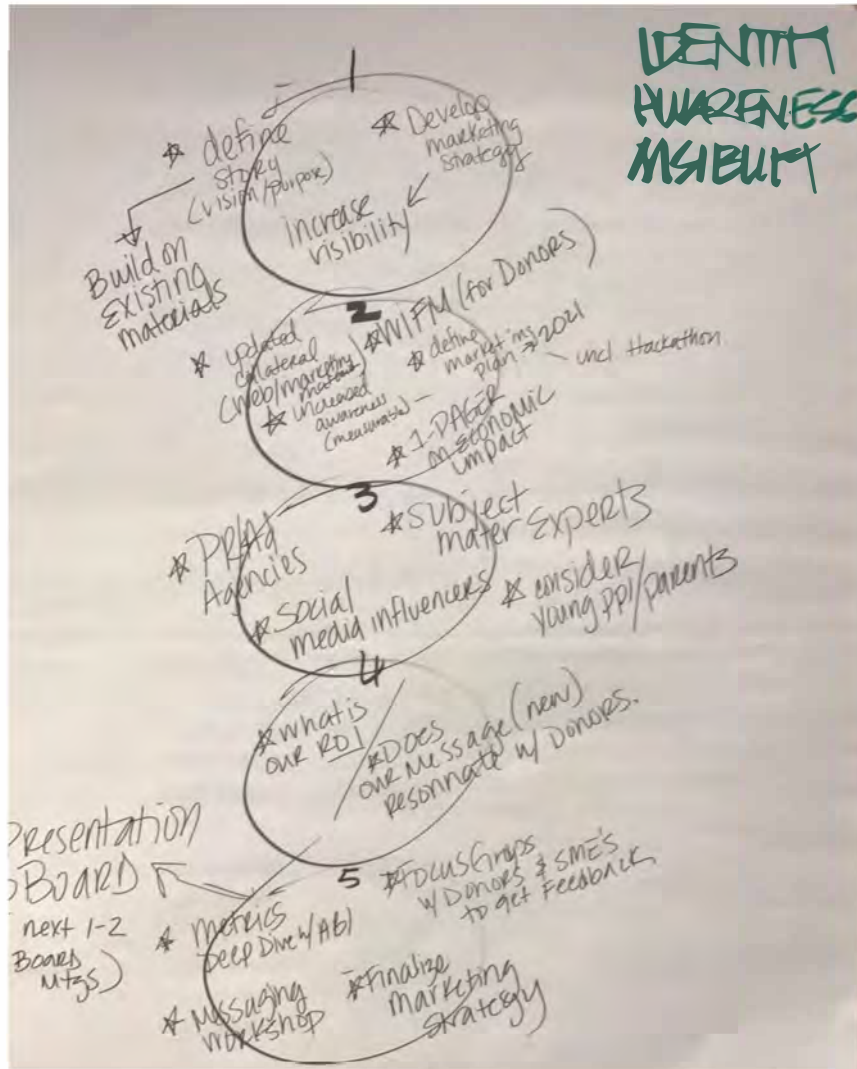 IDENTITY
AWARENESS
VISIBILITY
1
★ define
story
(vision/purpose)
Build on
Existing
materials
★ Develop
marketing
strategy
increase
visibility
2
★ updated
collateral
(web/marketing
materials)
★ increased
awareness
(measurable)
★ WIFM (for Donors)
★ define
marketing
plan → 2021
incl Hackathon.
★ 1-PAGER
on Economic
impact
3
★ PR/Ad
Agencies
★ Subject
mater Experts
★ Social
media influencers
★ consider
young ppl/parents
4
★ What is
our ROI
★ Does
our Message (new)
resonnate w/ Donors.
5
Presentation
BOARD
next 1-2
Board
Mtgs)
★ Metrics
Deep Dive w/ Abi
★ Focus Grops
w/ Donors & SME's
to get Feedback
★ Messaging
workshop
★ Finalize
marketing
strategy